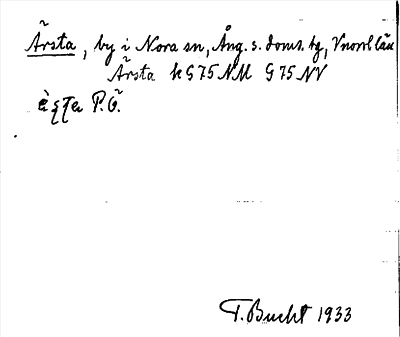 Årsta, by i Nora sn, Ång. s. doms. tg, Vnorrl län
Årsta k G 75 NM G 75 NV
P.Ö.
T. Bucht 1933